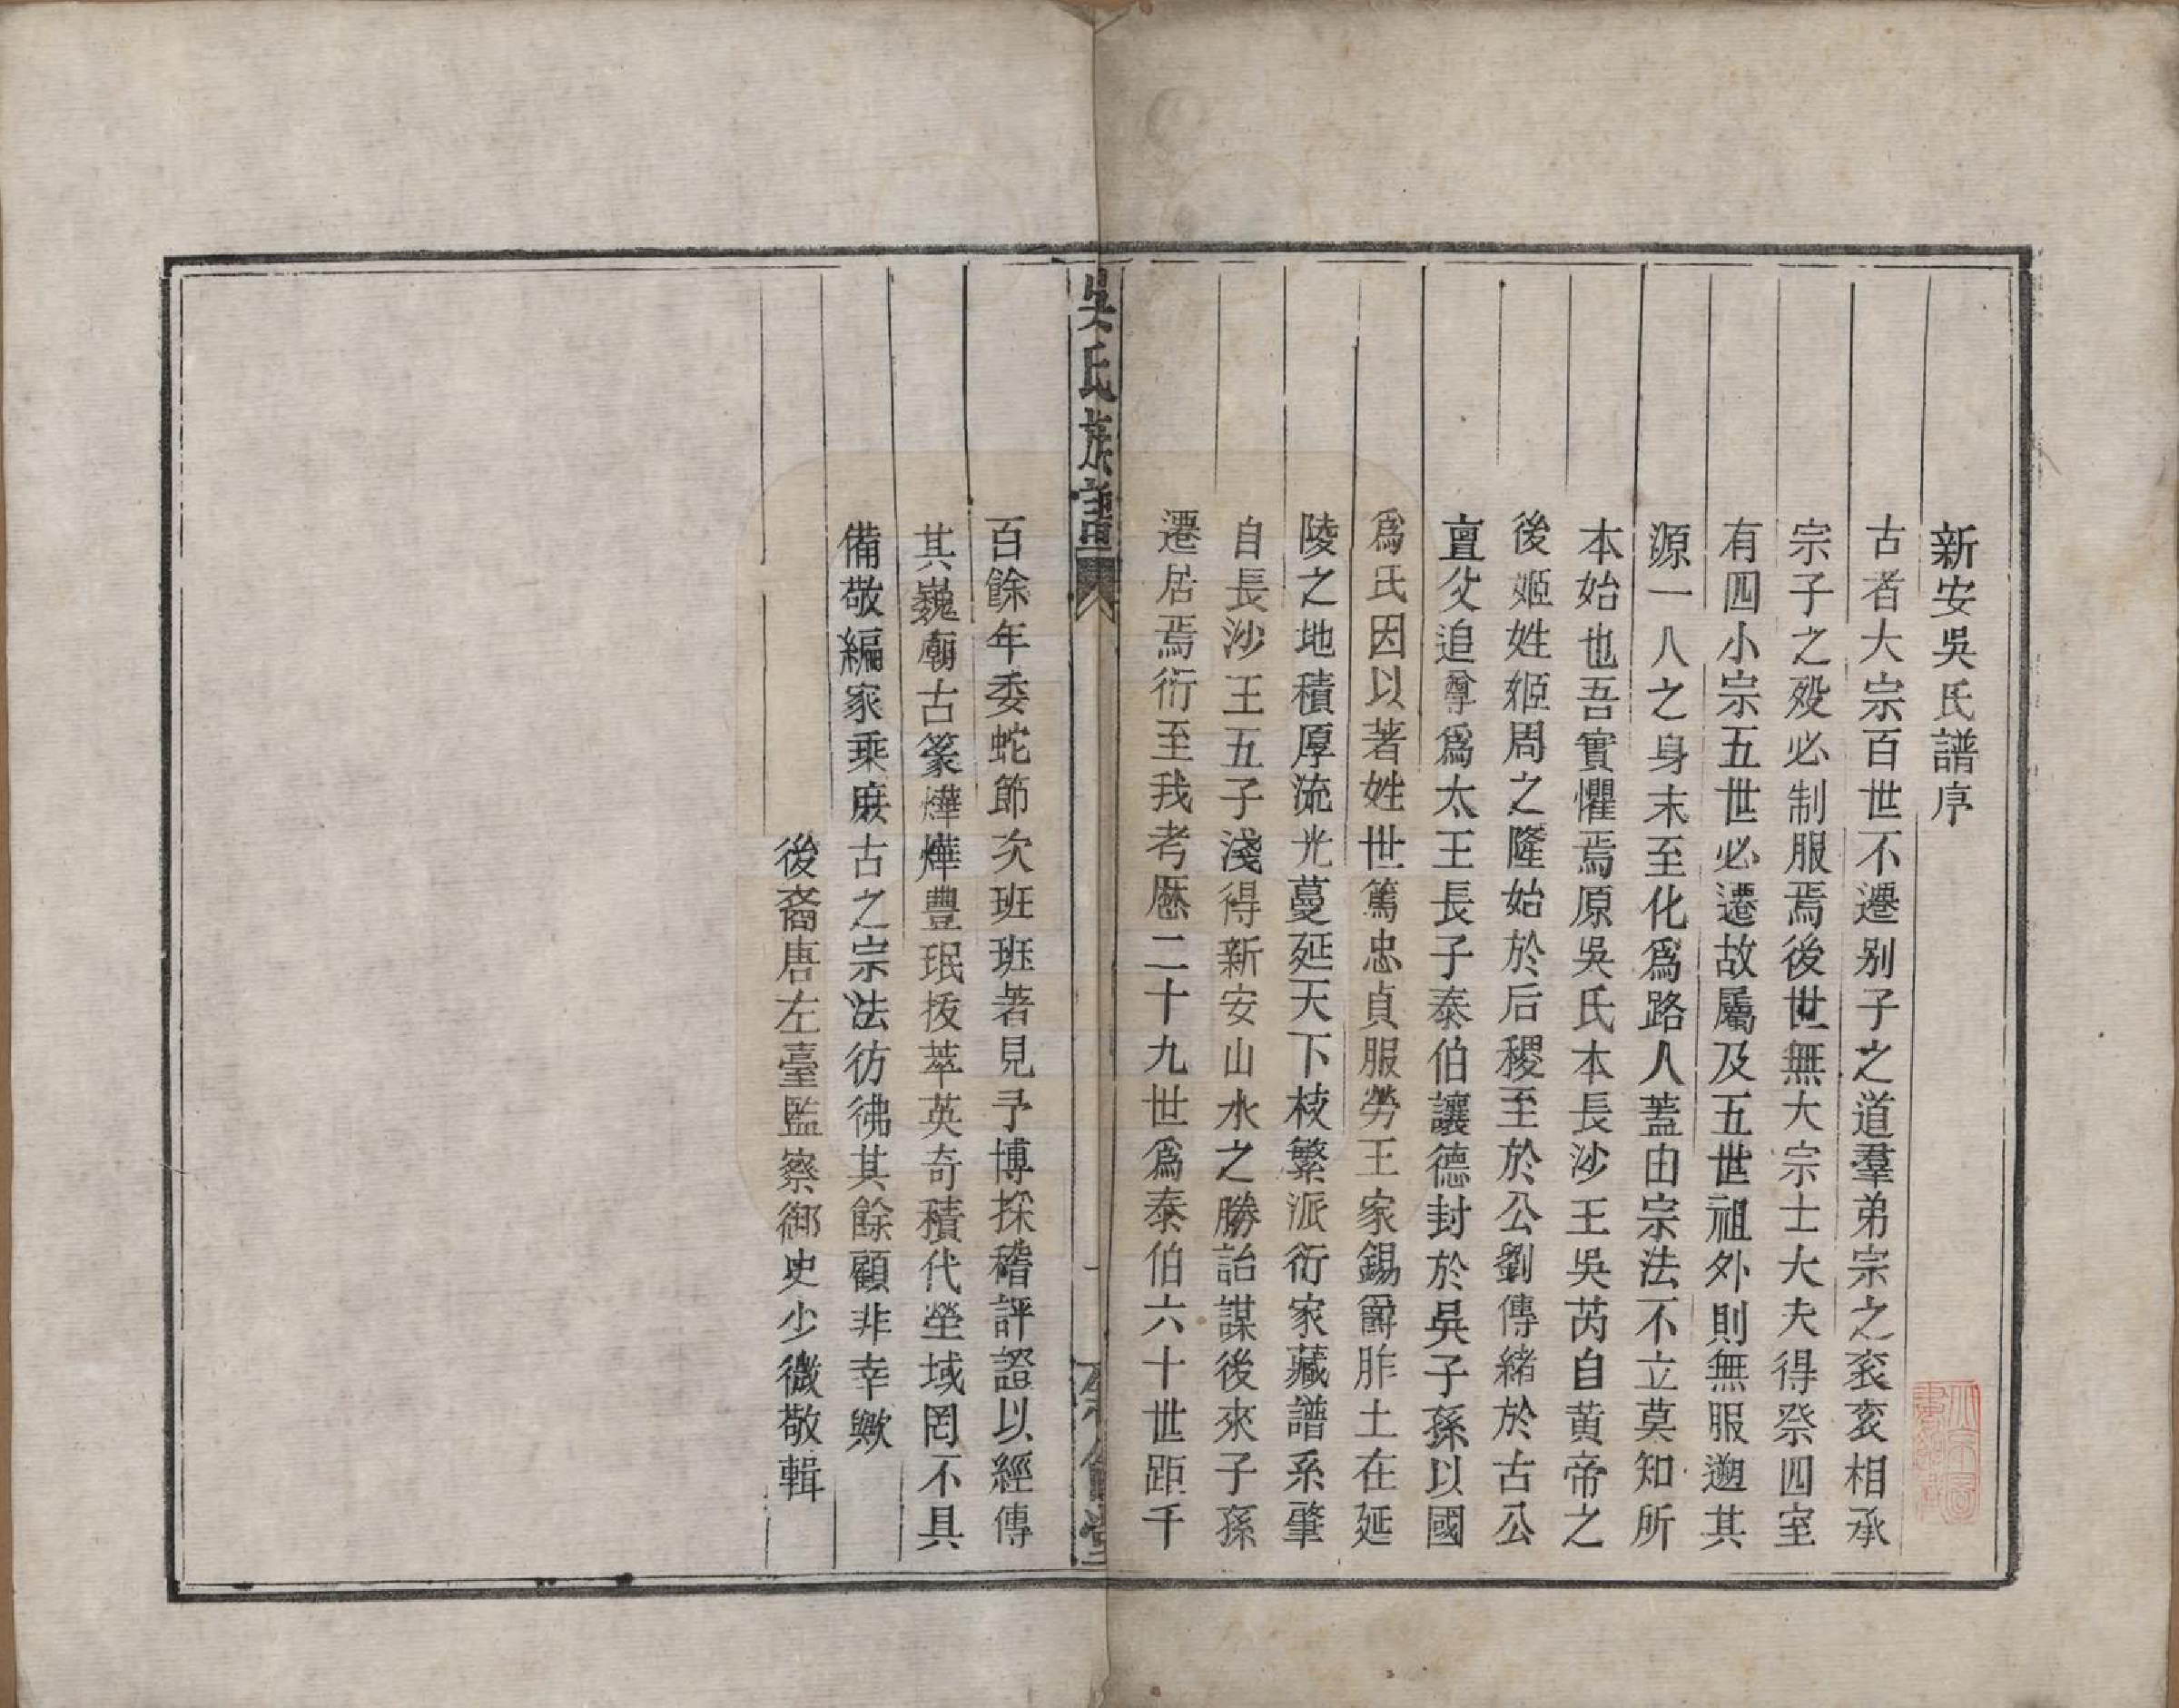 新安吳氏譜序
古者大宗百世不遷别子之道羣弟宗之衮衮相承
宗子之殁必制服焉後世無大宗士大夫得祭四室
有四小宗五世必遷故屬及五世祖外則無服遡其
源一人之身末至化爲路人蓋由宗法不立莫知所
本始也吾實懼焉原吳氏本長沙王吳芮自黄帝之
後姬姓姬周之隆始於后稷至於公劉傳緒於古公
亶父追尊爲太王長子泰伯讓德封於吳子孫以國
爲氏因以著姓世篤忠貞服勞王家錫爵胙土在延
陵之地積厚流光蔓延天下枝繁派衍家藏譜系肇
自長沙王五子淺得新安山水之勝詒謀後來子孫
遷居焉衍至我考歷二十九世爲泰伯六十世距千
吳氏族譜
一
堂
百餘年委蛇節次班班著見予博採稽評證以經傳
其巍廟古篆燁燁豐珉拔萃英奇積代塋域罔不具
備敬編家乘庶古之宗法彷彿其餘顧非幸歟
後裔唐左臺監察御史少微敬輯